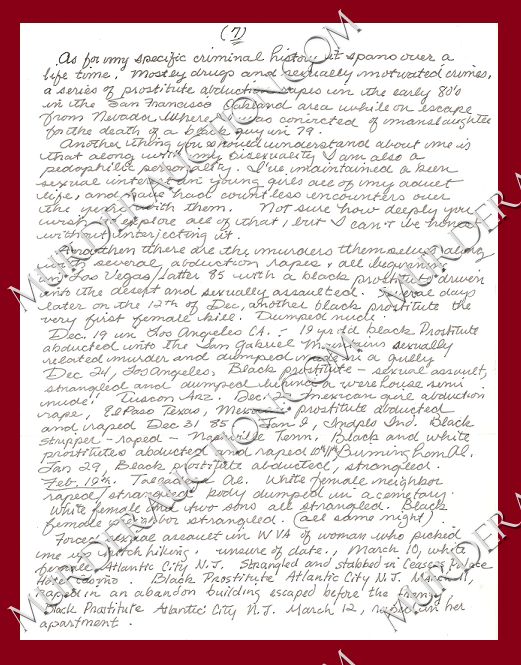 (7)
As for my specific criminal history it spans over a
life time. Mostly drugs and sexually motivated crimes,
a series of prostitute abduction rapes in the early 80's
in the San Francisco Oakland area while on escape
from Nevada where I was convicted of manslaughter
for the death of a black guy in 79.
Another thing you should understand about me is
that along with my bisexuality I am also a
pedophilic personality. I've maintained a keen
sexual interest in young girls all of my adult
life, and have had countless encounters over
the years with them. Not sure how deeply you
wish to explore all of that, but I can't be honest
without interjecting it.
then there are the murders themselves along
with several abduction rapes & all beginning
in Las Vegas/latter 85 with a black prostitute driven
into the desert and sexually assaulted. Several days
later on the 12th of Dec, another black prostitute the
very first female kill. Dumped nude
Dec. 19 in Los Angeles CA. - 19 yr old black Prostitute
abducted into the San Gabriel Mountains sexually
related murder and dumped nude in a gully
Dec 24, Los Angeles, Black prostitute - sexual assault,
strangled and dumped behind a warehouse semi
nude. Tuscon Arz. Dec. Mexican girl abduction
rape, El Paso Texas, Mexican prostitute abducted
and raped Dec 31 85 Jan 9, Indpls Ind. Black
stripper - raped - Nashville Tenn. Black and white
prostitutes abducted and raped Burmingham Al.
Jan 29, Black prostitute abducted, strangled.
Feb, 18th. Al. White female neighbor
raped/strangled, body dumped in a cemetary.
White female and two sons are strangled. Black
female neighbor strangled. (all same night).
Force sexual assault in W VA of woman who picked
me up hitch hiking. unsure of date., March 10, white
female Atlantic City N.J. Strangled and stabbed in Ceasers Palace
Hotel Casino. Black Prostitute Atlantic City N.J. March 11,
raped in an abandon building escaped before the
Black Prostitute Atlantic City N.J. March 12, raped in her
apartment.
MURDERAUCTION.COM